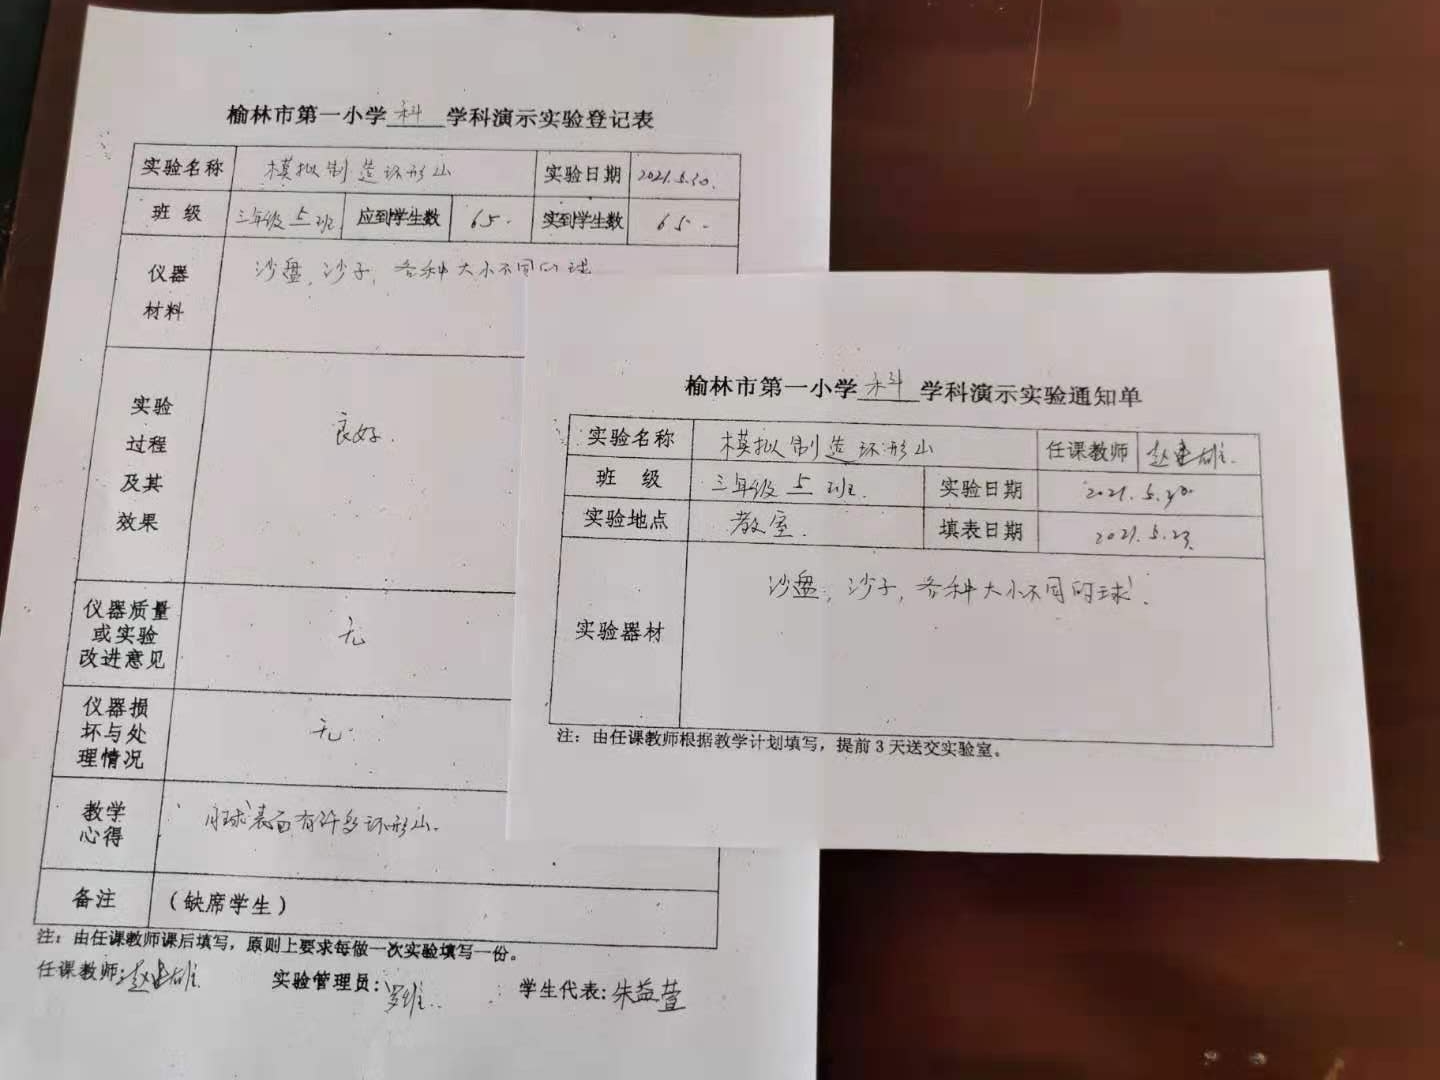 榆林市第一小学科学科演示实验登记表
实验名称 模拟制造环形山 实验日期 2021.5.30.
班 级 三年级五班 应到学生数 65. 实到学生数 65.
仪器
材料
沙盘,沙子,各种大小不同的球
实验
过程
及其
效果
良好.
仪器质量
或实验
改进意见
无
仪器损
坏与处
理情况
无.
教学
心得
月球表面有许多环形山.
备注 (缺席学生)
注:由任课教师课后填写,原则上要求每做一次实验填写一份。
任课教师:赵建雄 实验管理员: 学生代表:朱益萱
榆林市第一小学科学科演示实验通知单
实验名称 模拟制造环形山 任课教师 赵建雄.
班 级 三年级五班. 实验日期 2021.5.30
实验地点 教室. 填表日期 2021.5.23.
实验器材 沙盘,沙子,各种大小不同的球.
注:由任课教师根据教学计划填写,提前3天送交实验室。